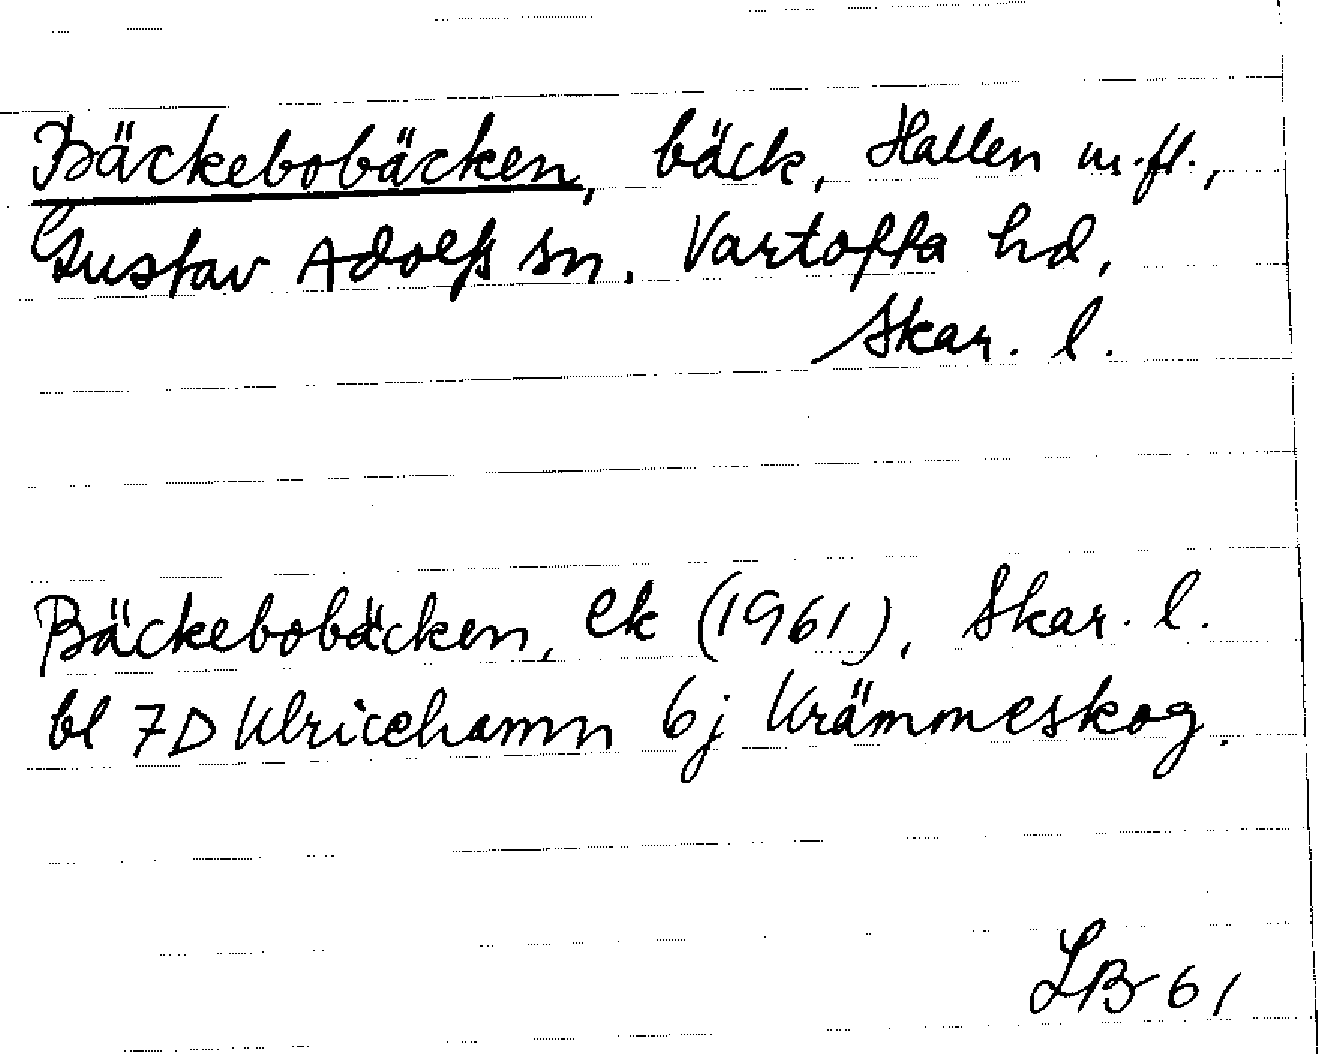 Bäckebobäcken, bäck, Hallen m.fl.,
Gustav Adolfs sn. Vartofta hd,
Skar. l.
Bäckebobäcken, ek (1961), Skar. l.
bl 7D Ulricehamn 6j Krämmeskog.
LB 61